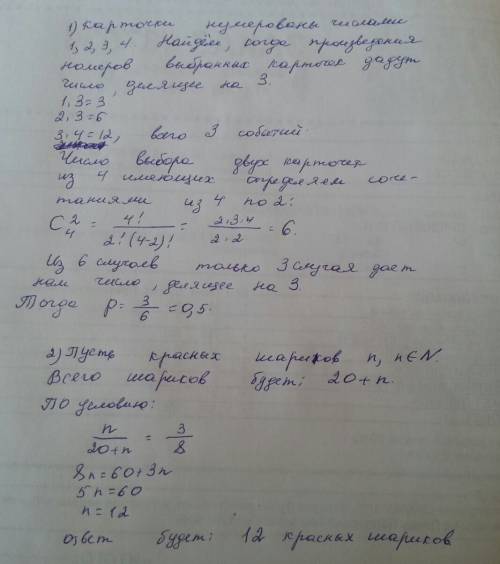 1) Карточки нумерованы числами
1, 2, 3, 4. Найдём, когда произведения
номеров выбранных карточек дадут
число, делящее на 3.
1·3=3
2·3=6
3·4=12, всего 3 событий.
Число выбора двух карточек
из 4 имеющих определяем соче-
таниями из 4 по 2:
C₄² = 4!/(2!(4-2)!) = 2·3·4/(2·2) = 6.
Из 6 случаев только 3 случая дает
нам число, делящее на 3.
Тогда P = 3/6 = 0,5.
2) Пусть красных шариков n, n∈N.
Всего шариков будет: 20+n.
По условию:
n/(20+n) = 3/8
8n=60+3n
5n=60
n=12
ответ будет: 12 красных шариков